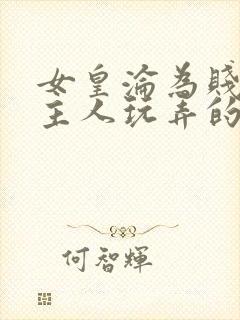 女皇淪為賤
主人玩弄的
何智輝